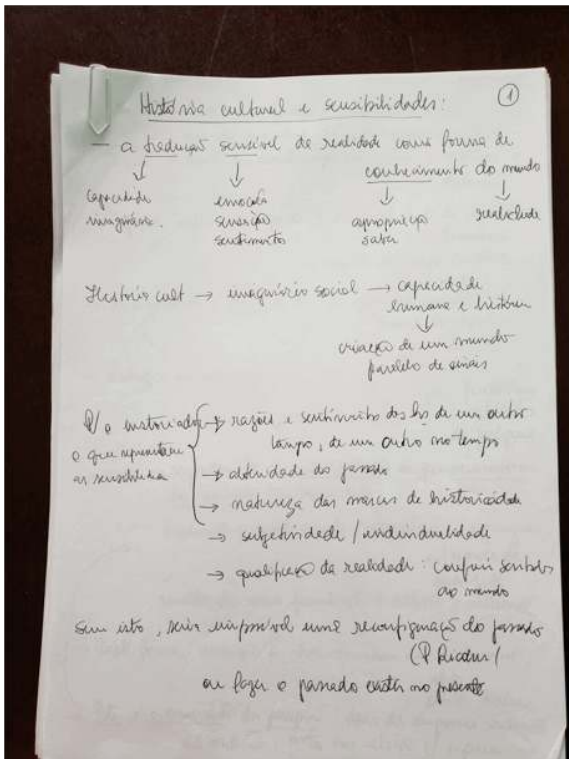 História cultural e sensibilidades: 1
— a tradução sensível da realidade como forma de
conhecimento do mundo
↓ ↓ ↓ ↓
capacidade emoção apropriação realidade
imaginária. sensação saber
sentimentos
História cult → imaginário social → capacidade
humana e histórica
↓
criação de um mundo
paralelo de sinais
P/ o historiador → razões e sentimentos dos hs de um outro
o que representam tempo, de um outro no tempo
as sensibilidades → alteridade do passado
→ natureza das marcas de historicidade
→ subjetividade / individualidade
→ qualificação da realidade: conferir sentidos
ao mundo
Sem isto, seria impossível uma reconfiguração do passado
(P Ricoeur)
ou fazer o passado existir no presente